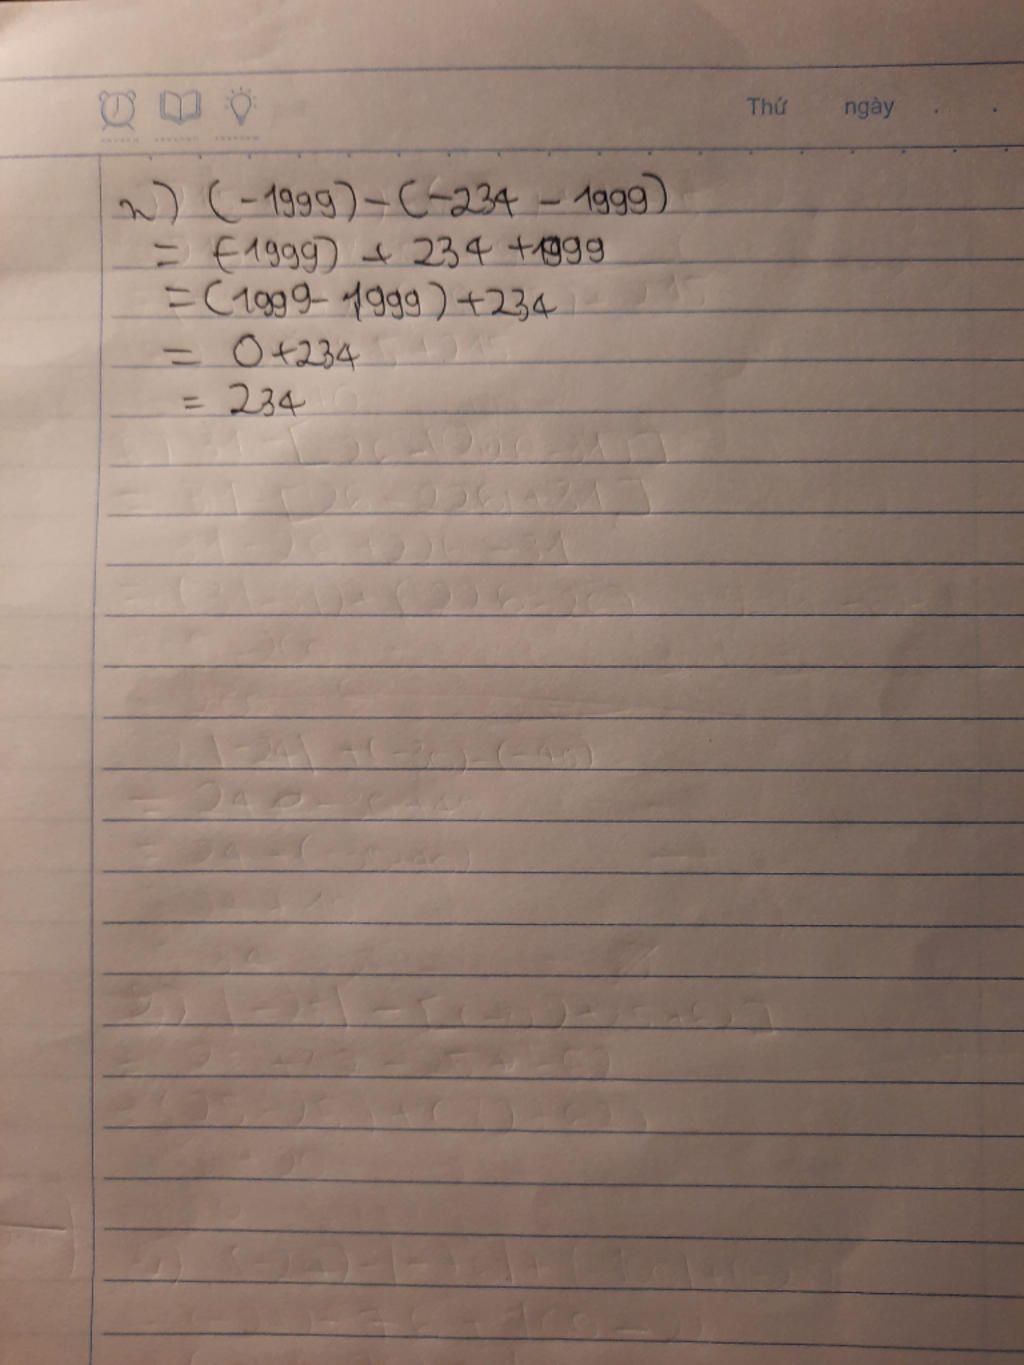 Thứ ngày . .
n) (-1999) - (-234 - 1999)
= (-1999) + 234 + 1999
= (1999 - 1999) + 234
= 0 + 234
= 234